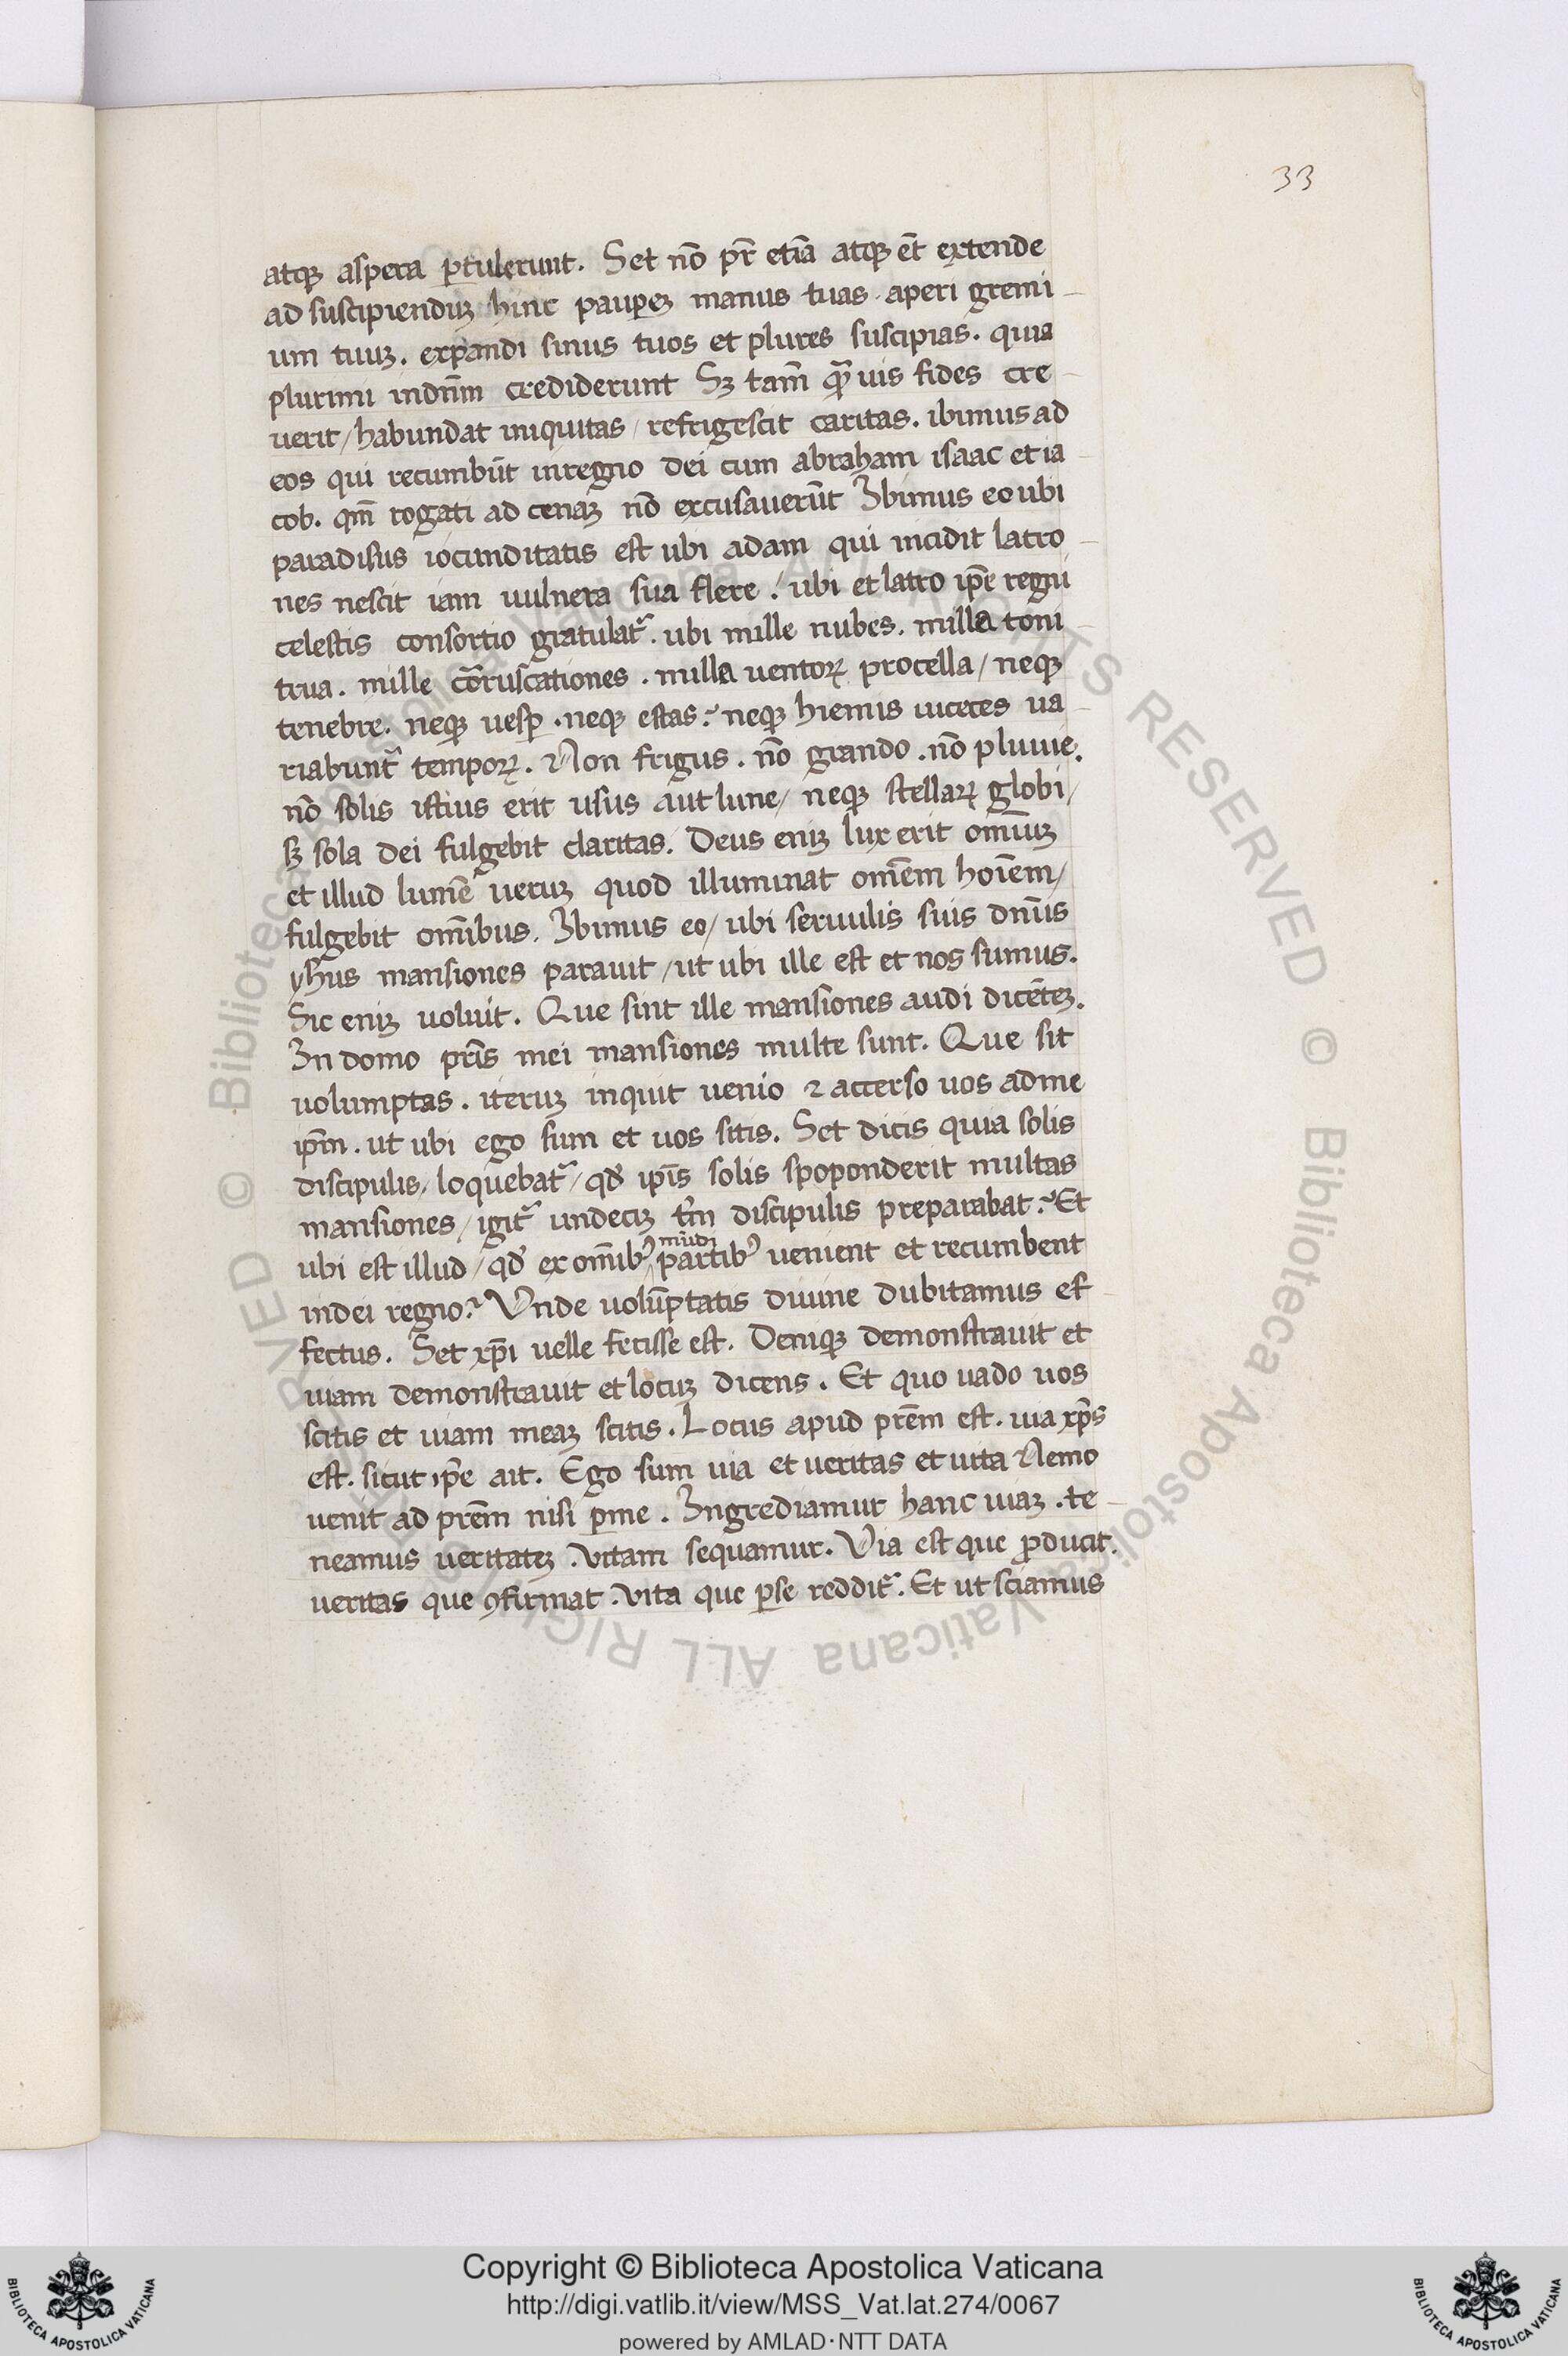 33
atqꝫ aspera ꝑtulerunt. Set nō pr̄ etiā atqꝫ et̄ extende
ad suscipienduꝫ hinc pauꝑeꝫ manus tuas. aperi gremi
um tuuꝫ. expandi sinus tuos et plures suscipias. quia
plurimi indn̄m crediderunt Sꝫ tam̄ qᷓuis fides cre
uerit/ habundat iniquitas/ refrigescit caritas. ibimus ad
eos qui recumbūt inregno dei cum abraham isaac et ia
cob. qm̄ rogati ad cenaꝫ nō excusauerūt Ibimus eo ubi
paradisus iocunditatis est ubi adam qui incidit latro
nes nescit iam uulnera sua flere. ubi et latro ip̄e regni
celestis consortio gratulatᷣ. ubi mille nubes. milla toni
trua. mille coruscationes. milla uentoꝝ procella/ neqꝫ
tenebre. neqꝫ uesꝑ. neqꝫ estas. neqꝫ hiemis uiceces ua
riabuntᷣ tempoꝝ. Non frigus. nō grando. nō pluuie.
nō solis istius erit usus aut lune/ neqꝫ stellaꝝ globi/
sꝫ sola dei fulgebit claritas. Deus eniꝫ lux erit om̄iuꝫ
et illud lumē ueruꝫ quod illuminat om̄em hoīem/
fulgebit om̄ibus. Ibimus eo/ ubi seruulis suis dn̄us
yh̄us mansiones parauit/ ut ubi ille est et nos sumus.
Sic eniꝫ uoluit. Que sint ille mansiones audi dicēteꝫ.
In domo pr̄is mei mansiones multe sunt. Que sit
uolumptas. iteruꝫ inquit uenio ⁊ accerso uos adme
ip̄m. ut ubi ego sum et uos sitis. Set dicis quia solis
discipulis/ loquebatᷣ/ qđ ip̄is solis spoponderit multas
mansiones/ igitᷣ undeciꝫ tm̄ discipulis preparabat. Et
mūdi
ubi est illud/ qđ ex om̄ibꝰ partibꝰ uenient et recumbent
indei regno. Vnde uolūptatis diuine dubitamus ef
fectus. Set xp̄i uelle fecisse est. Deniqꝫ demonstrauit et
uiam demonstrauit et locuꝫ dicens. Et quo uado uos
scitis et uiam meaꝫ scitis. Locus apud pr̄em est. uia xp̄s
est. sicut ip̄e ait. Ego sum uia et ueritas et uita Nemo
uenit ad pr̄em nisi ꝑme. Ingrediamur hanc uiaꝫ. te
neamus ueritateꝫ. vitam sequamur. Via est que ꝓducit.
ueritas que ꝯfirmat. vita que ꝑse redditᷣ. Et ut sciamus
© Biblioteca Apostolica Vaticana ALL RIGHTS RESERVED
Copyright © Biblioteca Apostolica Vaticana
http://digi.vatlib.it/view/MSS_Vat.lat.274/0067
powered by AMLAD·NTT DATA
BIBLIOTECA APOSTOLICA VATICANA
BIBLIOTECA APOSTOLICA VATICANA